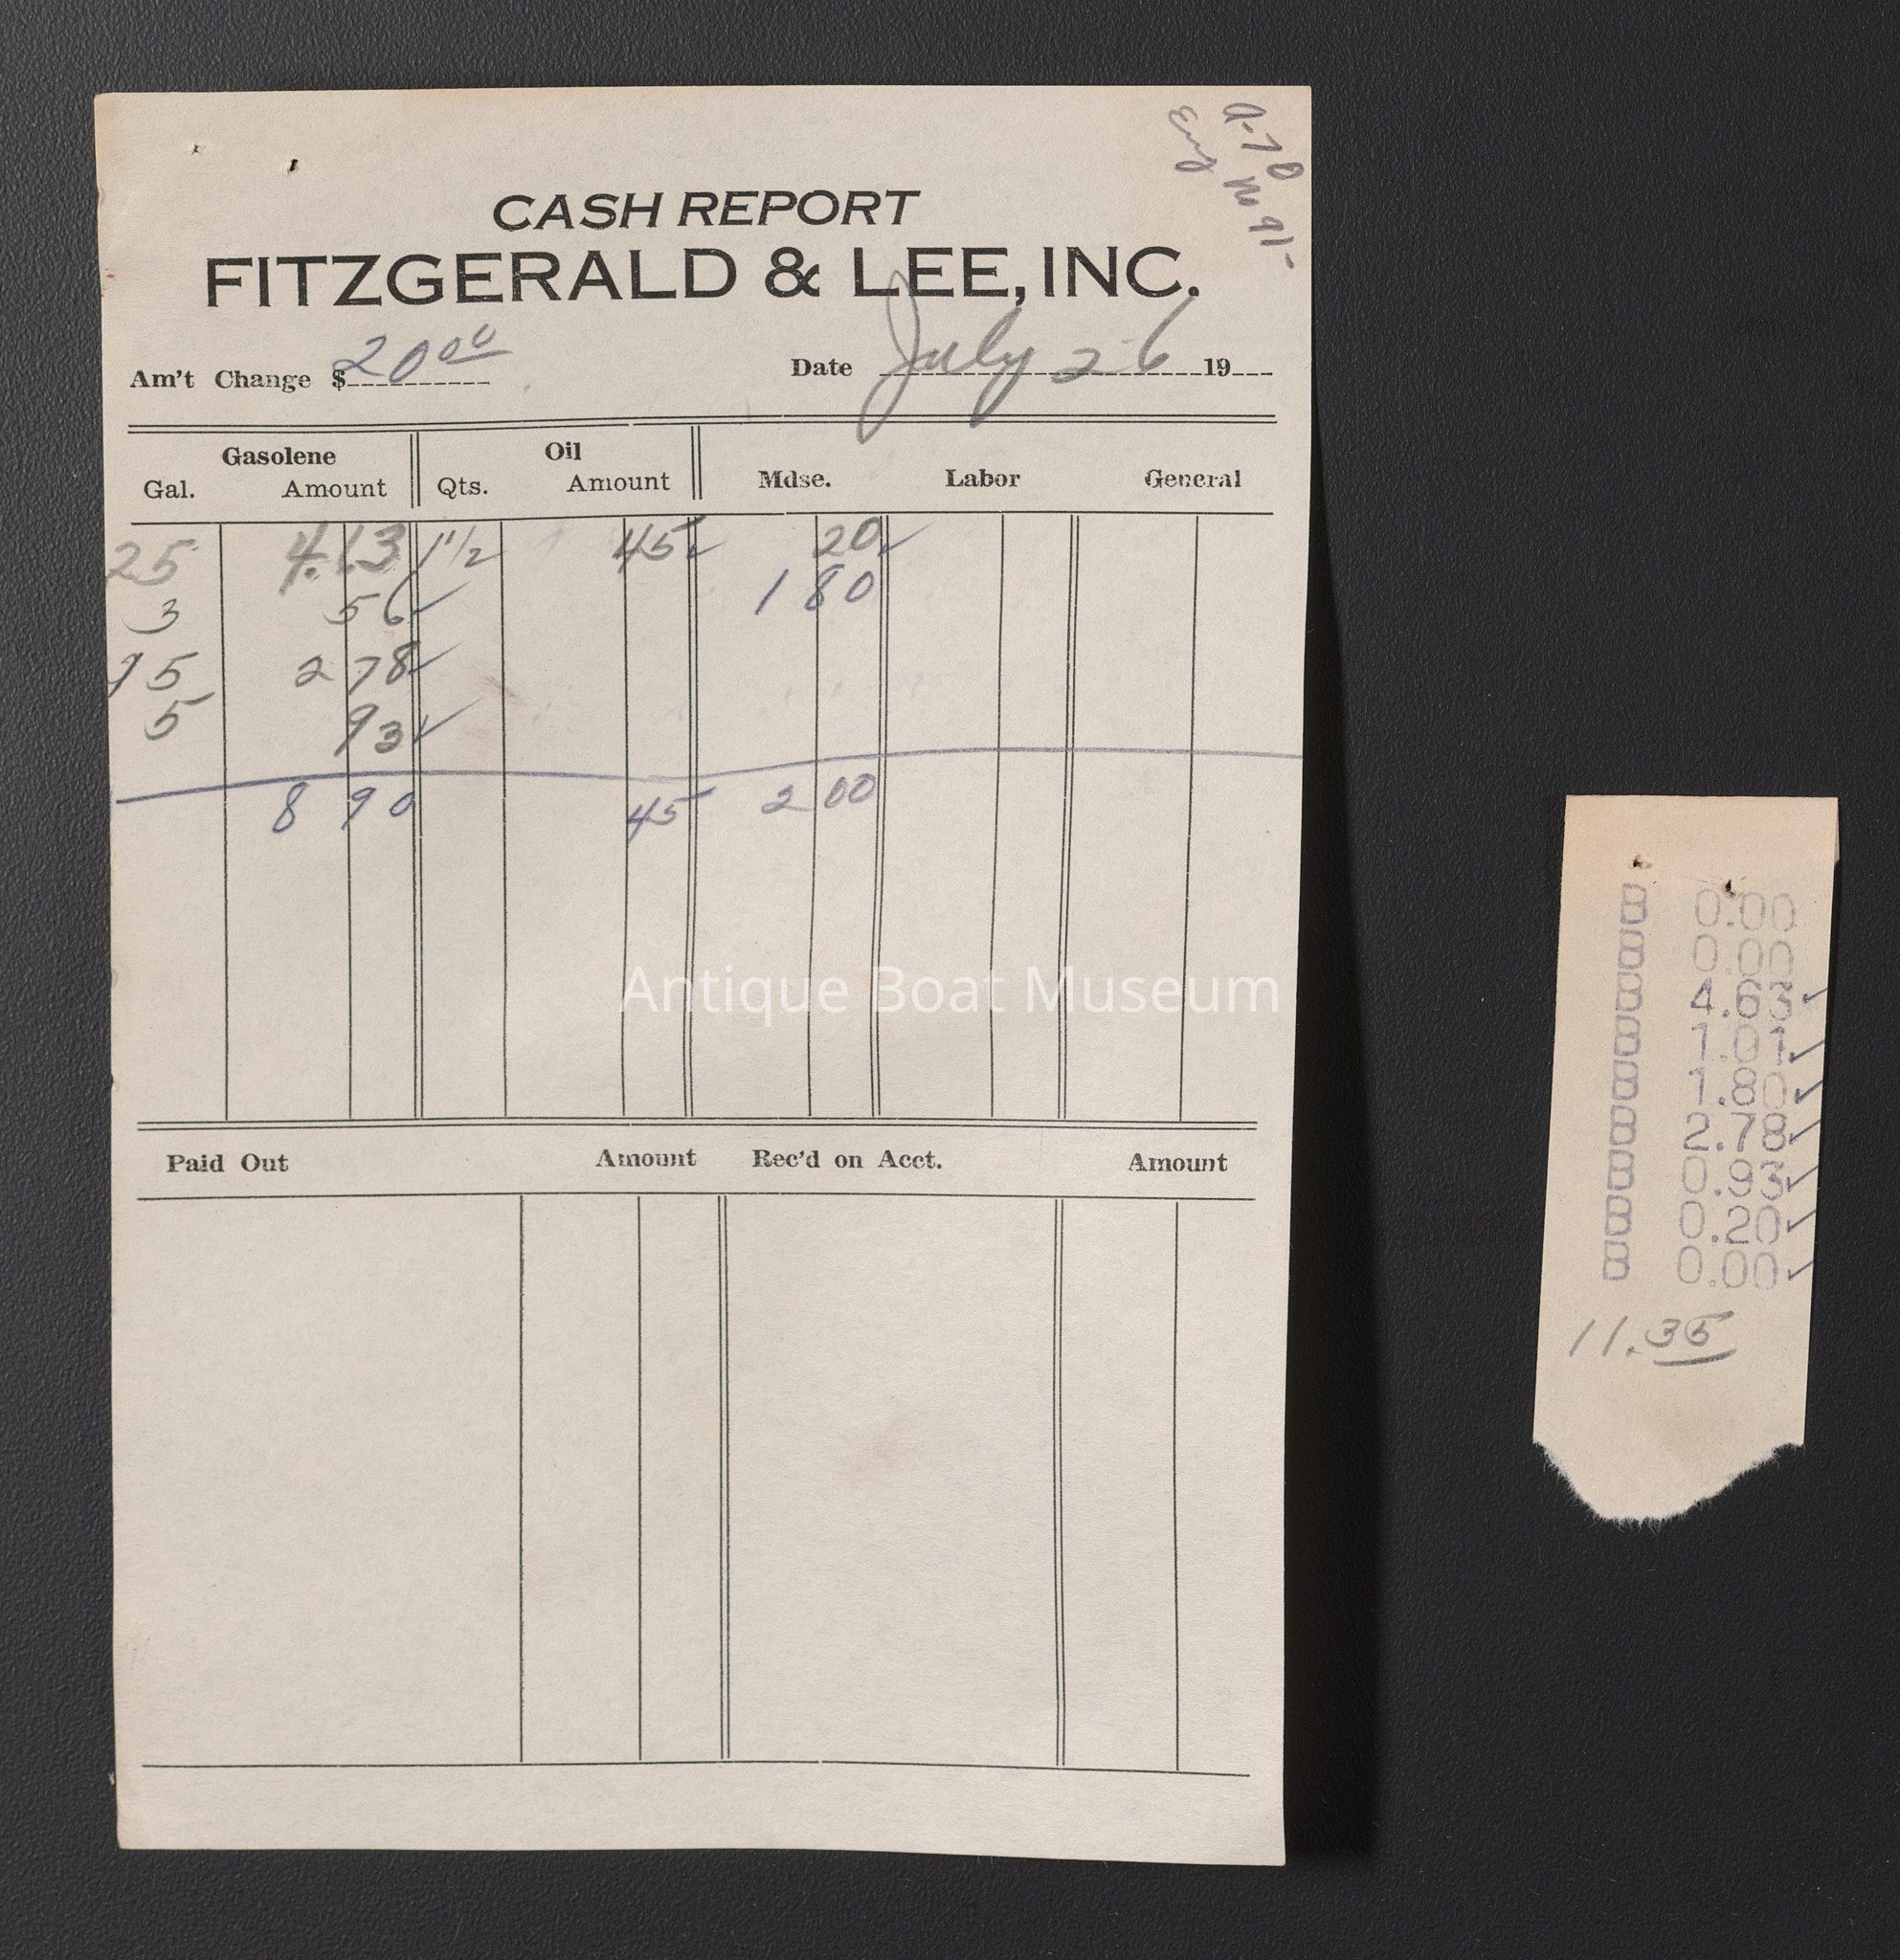 a-70 M 91-
Eng
CASH REPORT
FITZGERALD & LEE, INC.
Am't Change $ 20 00 Date July 26 19
Gasolene Oil
Gal. Amount Qts. Amount Mdse. Labor General
25 4.13 1 1/2 45 ✓ 20 ✓
3 56 ✓ 1 80
15 2 78 ✓
5 93 ✓
8 90 45 2 00
Paid Out Amount Rec'd on Acct. Amount
B 0.00
B 0.00
B 4.63 ✓
B 1.01 ✓
B 1.80 ✓
B 2.78 ✓
B 0.93 ✓
B 0.20 ✓
B 0.00 ✓
11.35
Antique Boat Museum